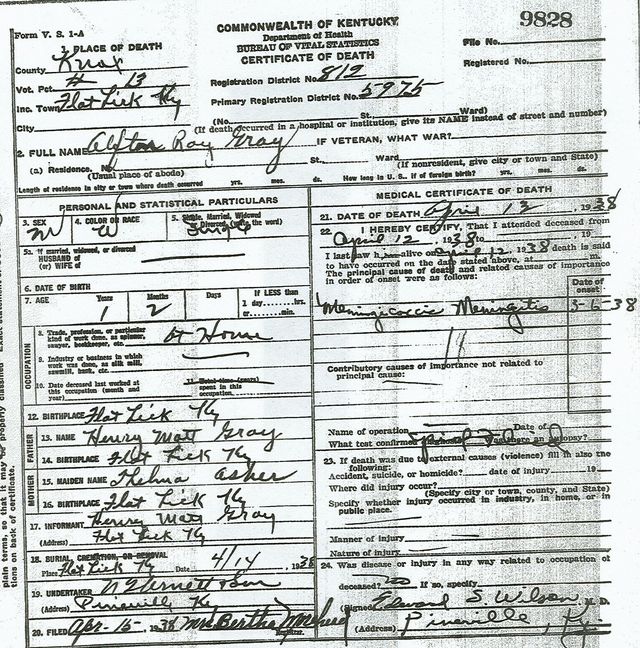 9828
Form V. S. 1-A
COMMONWEALTH OF KENTUCKY
Department of Health
BUREAU OF VITAL STATISTICS
CERTIFICATE OF DEATH
File No.
Registered No.
1. PLACE OF DEATH
County Knox
Vot. Pct. # 13
Inc. Town Flat Lick Ky
City
Registration District No. 812
Primary Registration District No. 5975
(No. St. Ward)
(If death occurred in a hospital or institution, give its NAME instead of street and number)
2. FULL NAME Ray Gray IF VETERAN, WHAT WAR?
(a) Residence. No. St. Ward
(Usual place of abode) (If nonresident, give city or town and State)
Length of residence in city or town where death occurred yrs. mos. ds. How long in U. S., if of foreign birth? yrs. mos. ds.
PERSONAL AND STATISTICAL PARTICULARS
3. SEX M 4. COLOR OR RACE W 5. Single, Married, Widowed or Divorced (write the word) Single
5a. If married, widowed, or divorced
HUSBAND of
(or) WIFE of
6. DATE OF BIRTH
7. AGE Years 1 Months 2 Days If LESS than
1 day......hrs.
or......min.
OCCUPATION
8. Trade, profession, or particular
kind of work done, as spinner,
sawyer, bookkeeper, etc. at Home
9. Industry or business in which
work was done, as silk mill,
sawmill, bank, etc.
10. Date deceased last worked at
this occupation (month and
year)
11. Total time (years)
spent in this
occupation
12. BIRTHPLACE Flat Lick Ky
FATHER
13. NAME Henry Matt Gray
14. BIRTHPLACE Flat Lick Ky
MOTHER
15. MAIDEN NAME Thelma Asher
16. BIRTHPLACE Flat Lick Ky
17. INFORMANT Henry Matt Gray
(Address) Flat Lick Ky
18. BURIAL, CREMATION, OR REMOVAL
Place Flat Lick Ky Date 4/14, 1938
19. UNDERTAKER
(Address) Pineville Ky
20. FILED Apr-15-1938 Mrs Bertha
Registrar.
MEDICAL CERTIFICATE OF DEATH
21. DATE OF DEATH April 13, 1938
22. I HEREBY CERTIFY, That I attended deceased from
April 12, 1938 to , 19
I last saw h alive on April 12 1938 death is said
to have occurred on the date stated above, at m.
The principal cause of death and related causes of importance
in order of onset were as follows:
Date of
onset
Meningicoccic Meningitis 3-6-38
18
Contributory causes of importance not related to
principal cause:
Name of operation Date of
What test confirmed Was there an autopsy?
23. If death was due to external causes (violence) fill in also the
following:
Accident, suicide, or homicide? date of injury 19
Where did injury occur?
(Specify city or town, county, and State)
Specify whether injury occurred in industry, in home, or in
public place.
Manner of injury
Nature of injury
24. Was disease or injury in any way related to occupation of
deceased? no If so, specify
(Signed) Edward S. Wilson M. D.
(Address) Pineville, Ky.
plain terms, so that it may be properly classified
tions on back of certificate.